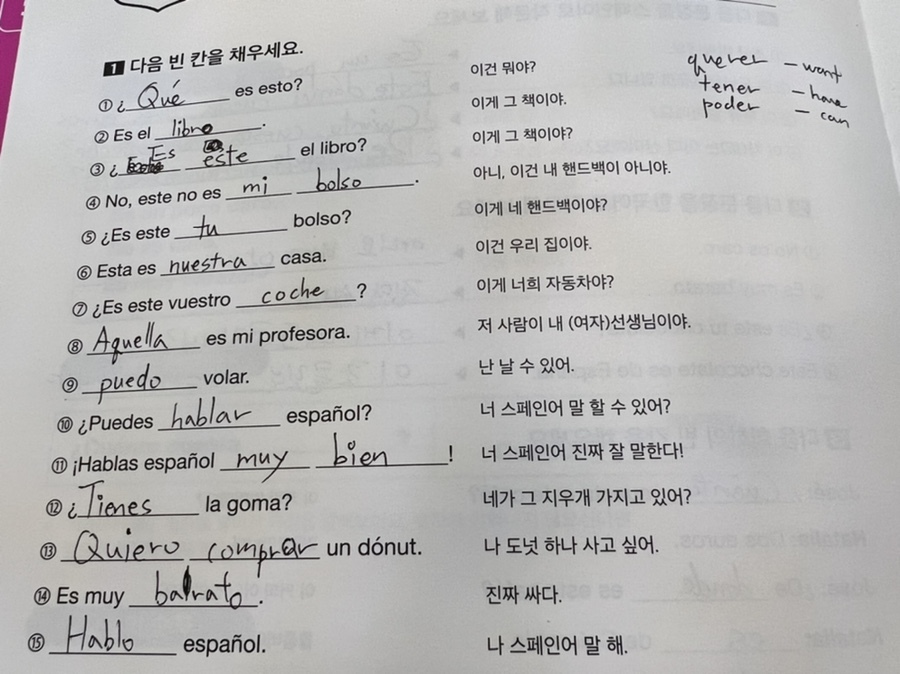 1 다음 빈 칸을 채우세요.
querer – want
tener – have
poder – can
① ¿ Qué es esto? 이건 뭐야?
② Es el libro. 이게 그 책이야.
③ ¿ Es este el libro? 이게 그 책이야?
④ No, este no es mi bolso. 아니, 이건 내 핸드백이 아니야.
⑤ ¿Es este tu bolso? 이게 네 핸드백이야?
⑥ Esta es nuestra casa. 이건 우리 집이야.
⑦ ¿Es este vuestro coche? 이게 너희 자동차야?
⑧ Aquella es mi profesora. 저 사람이 내 (여자)선생님이야.
⑨ puedo volar. 난 날 수 있어.
⑩ ¿Puedes hablar español? 너 스페인어 말 할 수 있어?
⑪ ¡Hablas español muy bien! 너 스페인어 진짜 잘 말한다!
⑫ ¿Tienes la goma? 네가 그 지우개 가지고 있어?
⑬ Quiero comprar un dónut. 나 도넛 하나 사고 싶어.
⑭ Es muy barato. 진짜 싸다.
⑮ Hablo español. 나 스페인어 말 해.